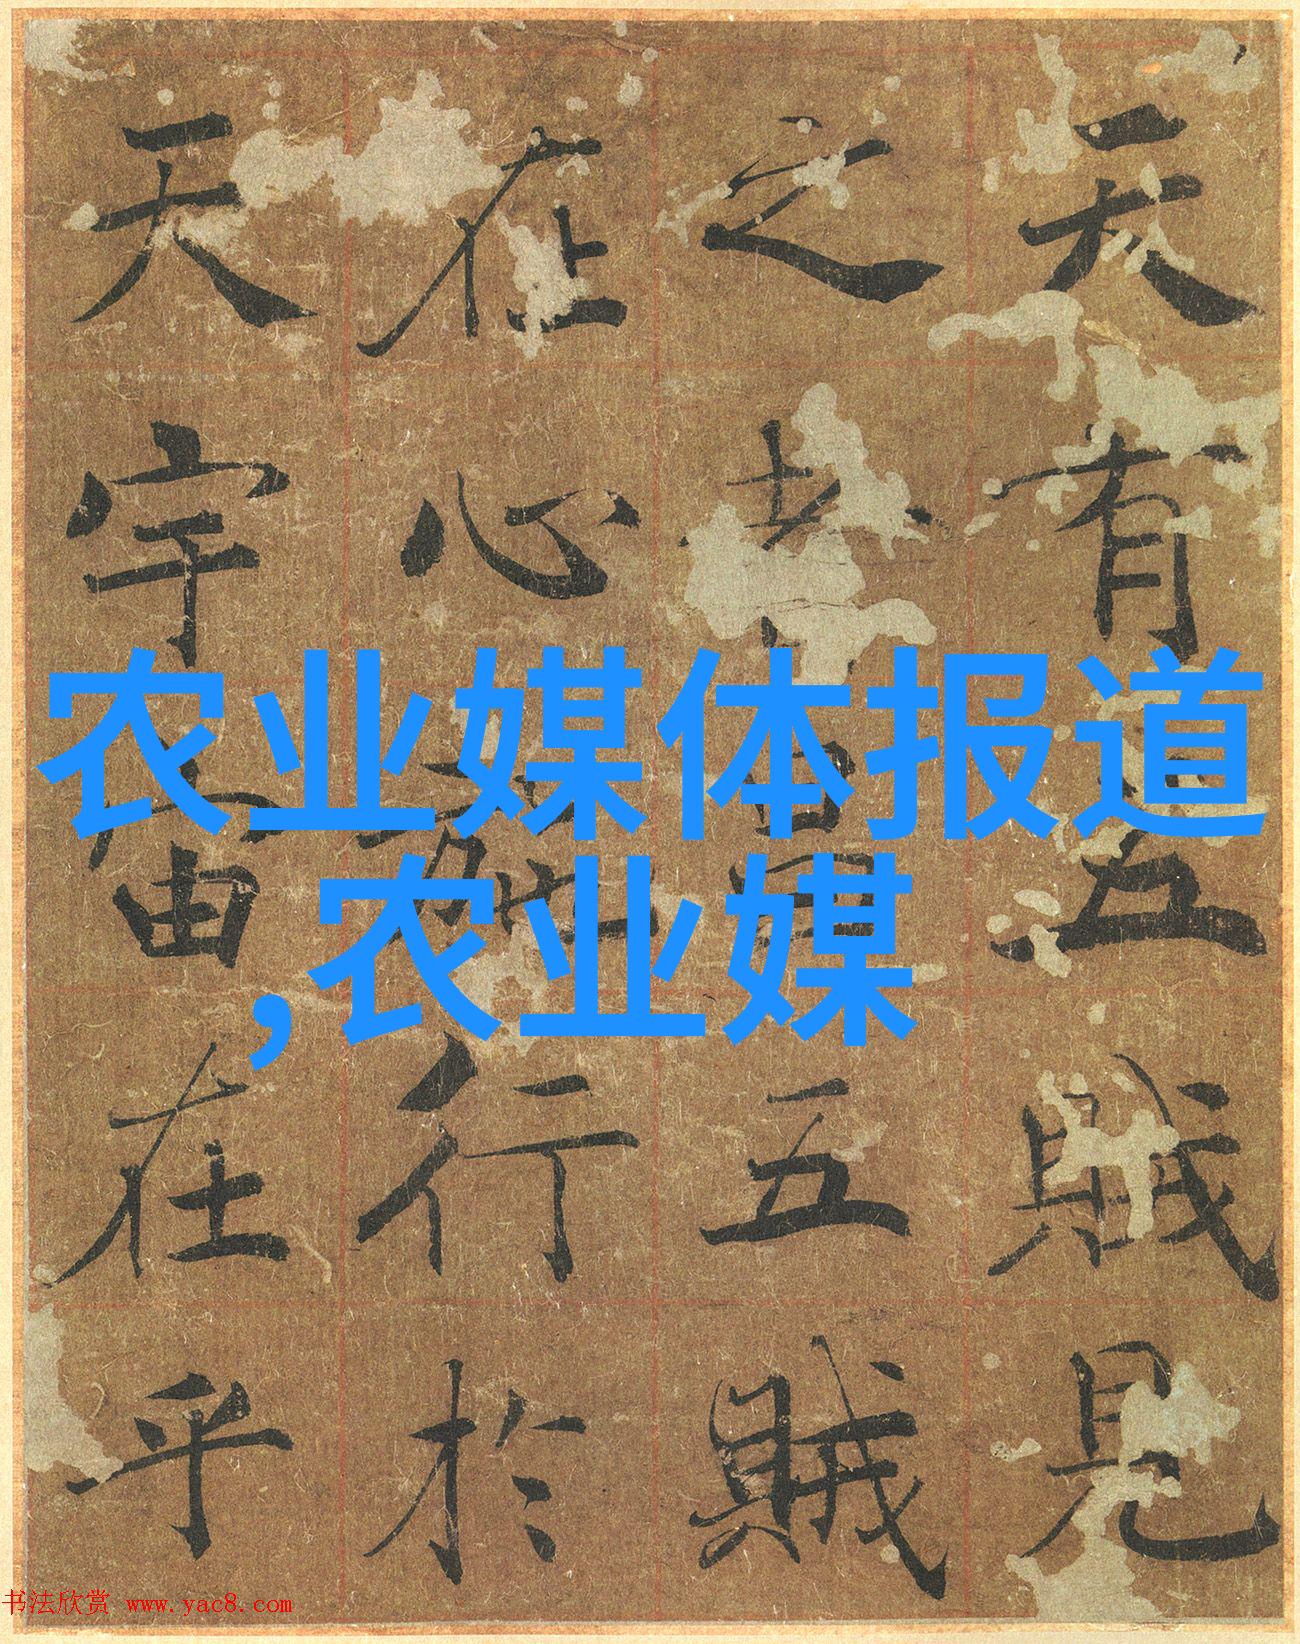 天有五賊見
之者昌五賊
在心施行於
天宇宙在乎
农业媒体报道
,农业媒
书法欣赏 www.yac8.com